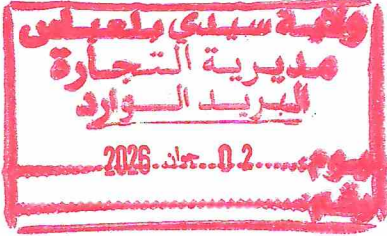 ولاية سيدي بلعباس
مديرية التجارة
البريد الوارد
يوم 02 جوان 2026
رقم